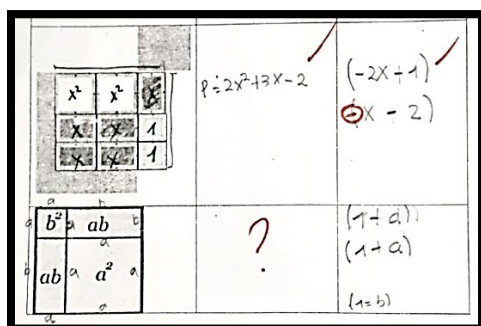 x² x² x
x x 1
x x 1
P = 2x²+3x-2
(-2x+1)
(-x - 2)
a b
a b² a ab b
a
b ab a a² a
a a
?
(1+a)
(1+a)
(1=b)